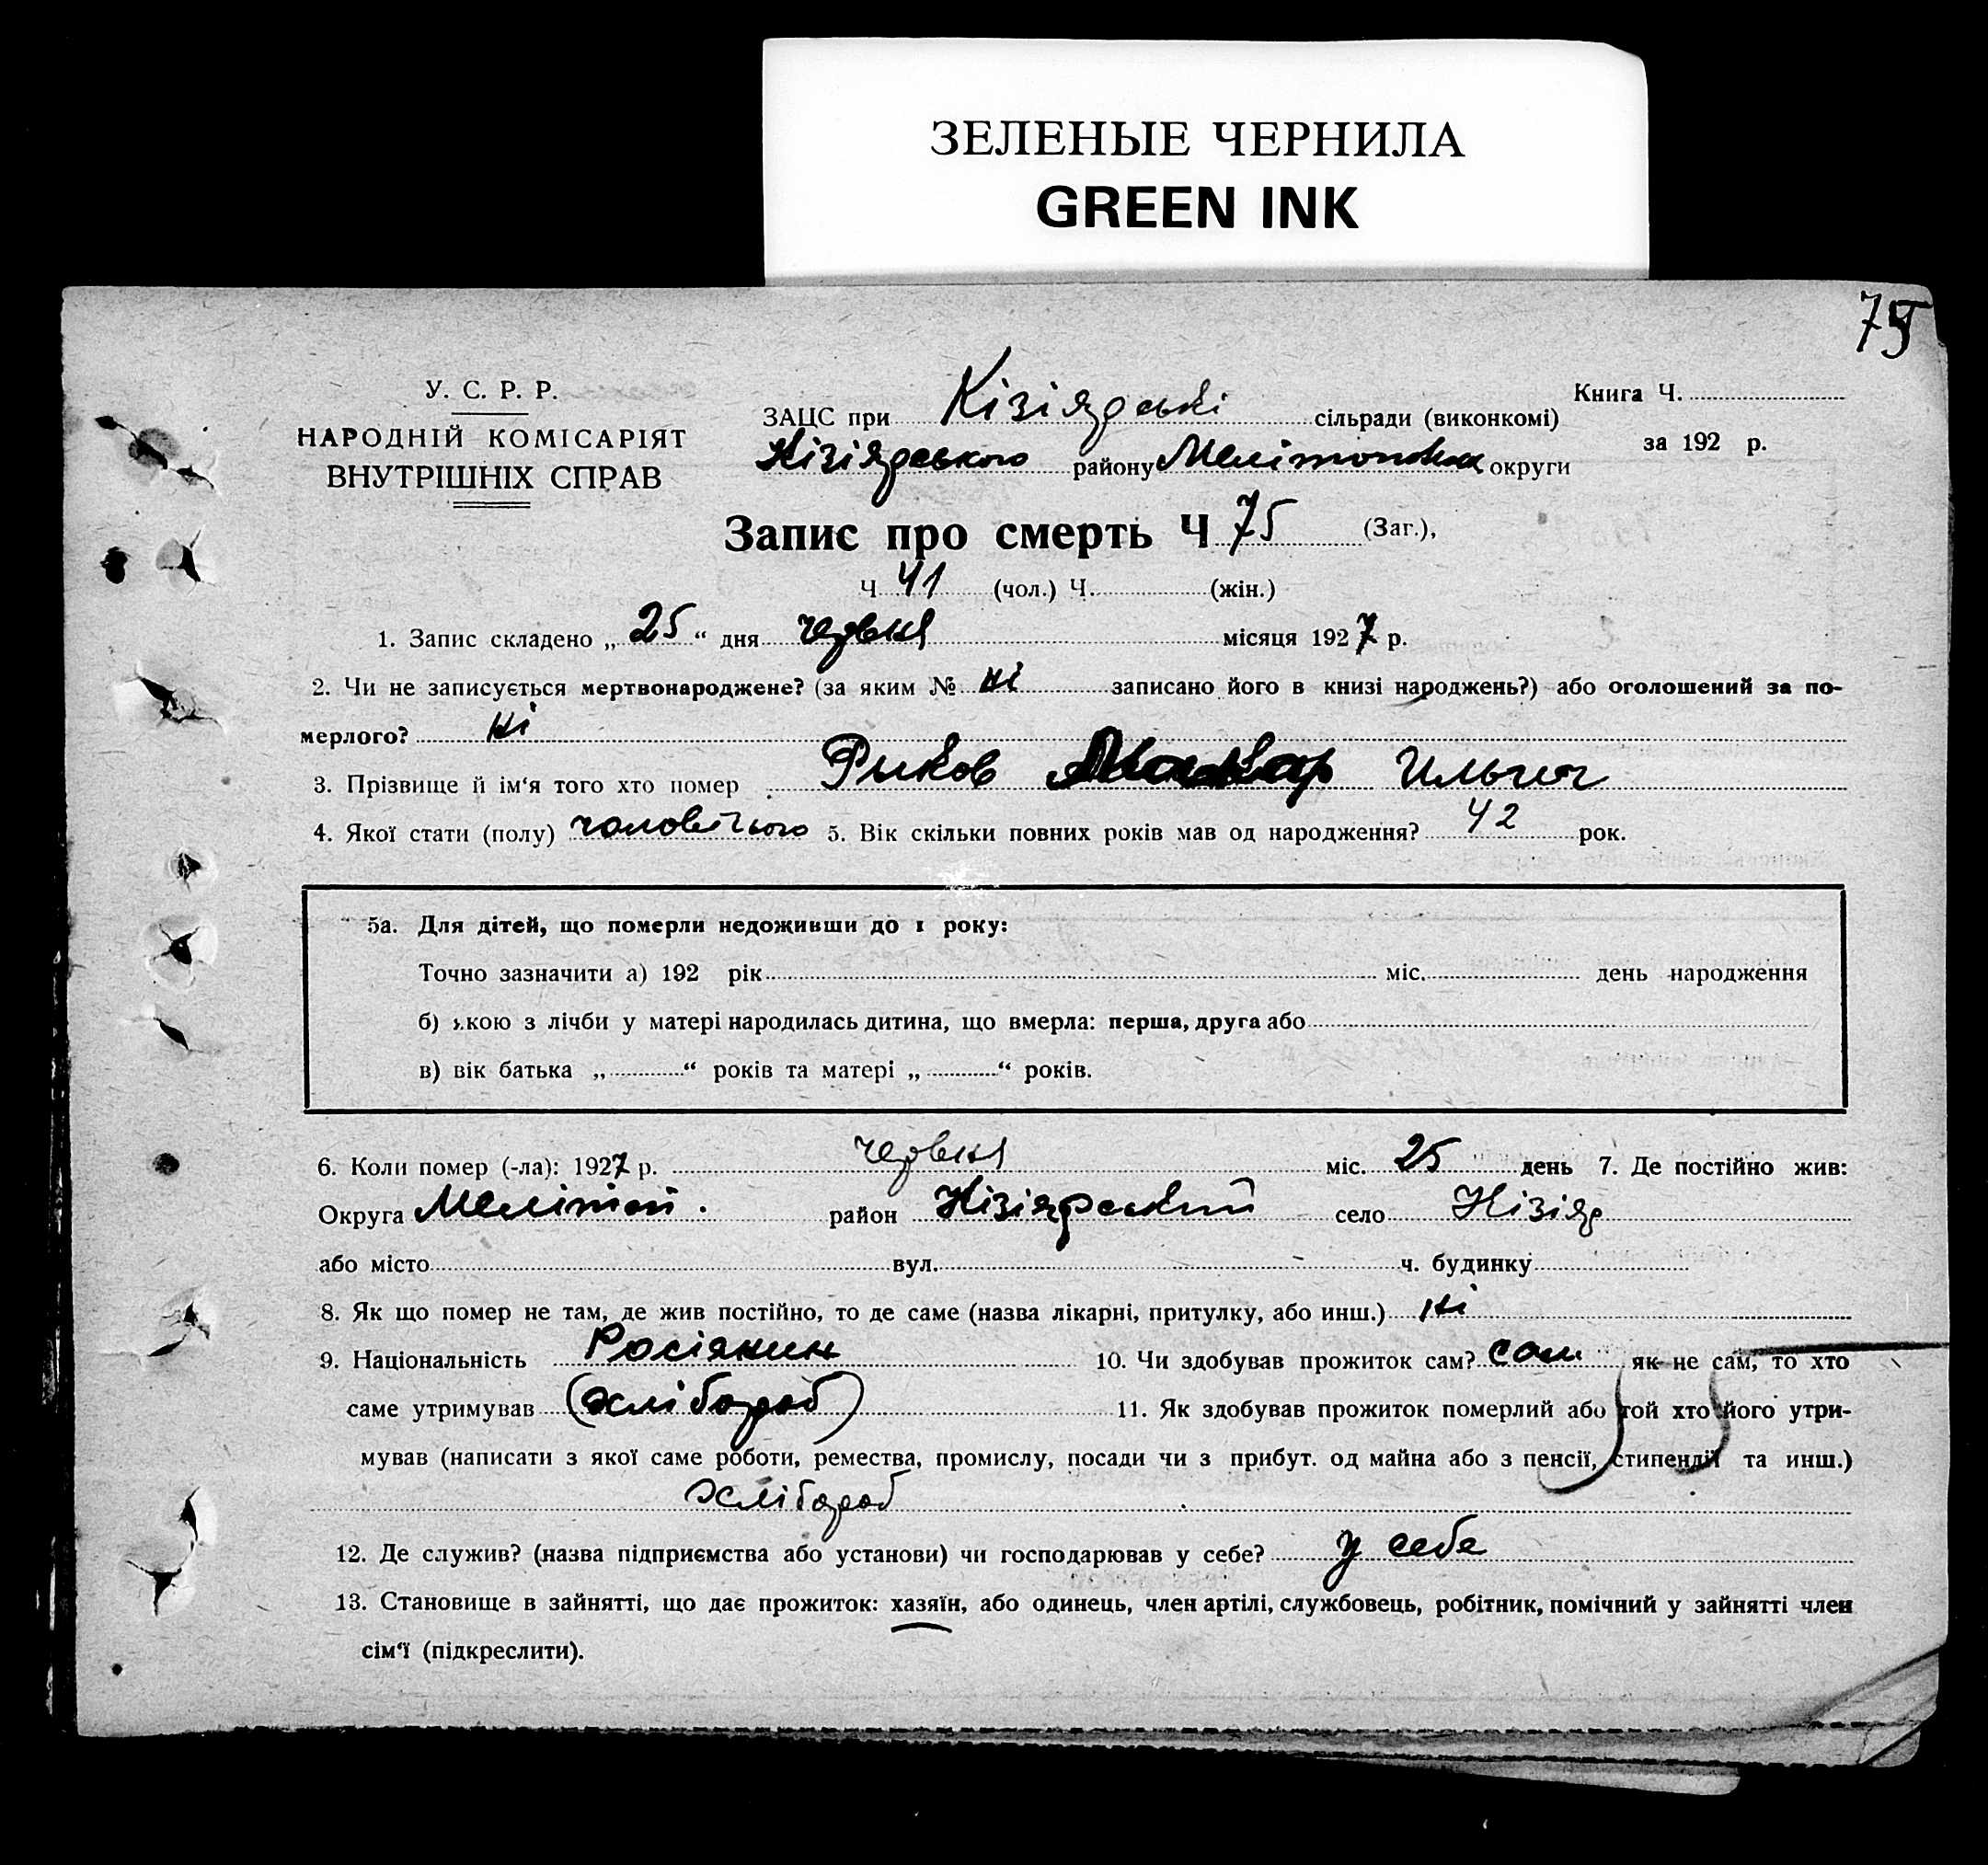 ЗЕЛЕНЫЕ ЧЕРНИЛА
GREEN INK
75
У. С. Р. Р.
НАРОДНІЙ КОМІСАРІЯТ
ВНУТРІШНІХ СПРАВ
ЗАЦС при Кізіярські сільради (виконкомі)
Кізіярського району Мелітопольск округи
Книга Ч.
за 192 р.
Запис про смерть Ч 75 (Заг.),
Ч 41 (чол.) Ч. (жін.)
1. Запис складено „ 25 “ дня червня місяця 1927 р.
2. Чи не записується мертвонароджене? (за яким № ні записано його в книзі народжень?) або оголошений за по-
мерлого? ні
3. Прізвище й ім‘я того хто помер Рыков Ильич
4. Якої стати (полу) чоловічього 5. Вік скільки повних років мав од народження? 42 рок.
5а. Для дітей, що померли недоживши до 1 року:
Точно зазначити а) 192 рік міс. день народження
б) якою з лічби у матері народилась дитина, що вмерла: перша, друга або
в) вік батька „ “ років та матері „ “ років.
6. Коли помер (-ла): 1927 р. червня міс. 25 день 7. Де постійно жив:
Округа Меліпіль. район Кізіярський село Кізіяр
або місто вул. ч. будинку
8. Як що помер не там, де жив постійно, то де саме (назва лікарні, притулку, або инш.) ні
9. Національність Росіянин 10. Чи здобував прожиток сам? сам як не сам, то хто
саме утримував (хлібороб) 11. Як здобував прожиток померлий або той хто його утри-
мував (написати з якої саме роботи, ремества, промислу, посади чи з прибут. од майна або з пенсії, стипендії та инш.)
хлібороб
12. Де служив? (назва підприємства або установи) чи господарював у себе? у себе
13. Становище в зайнятті, що дає прожиток: хазяїн, або одинець, член артілі, службовець, робітник, помічний у зайнятті член
сім‘ї (підкреслити).